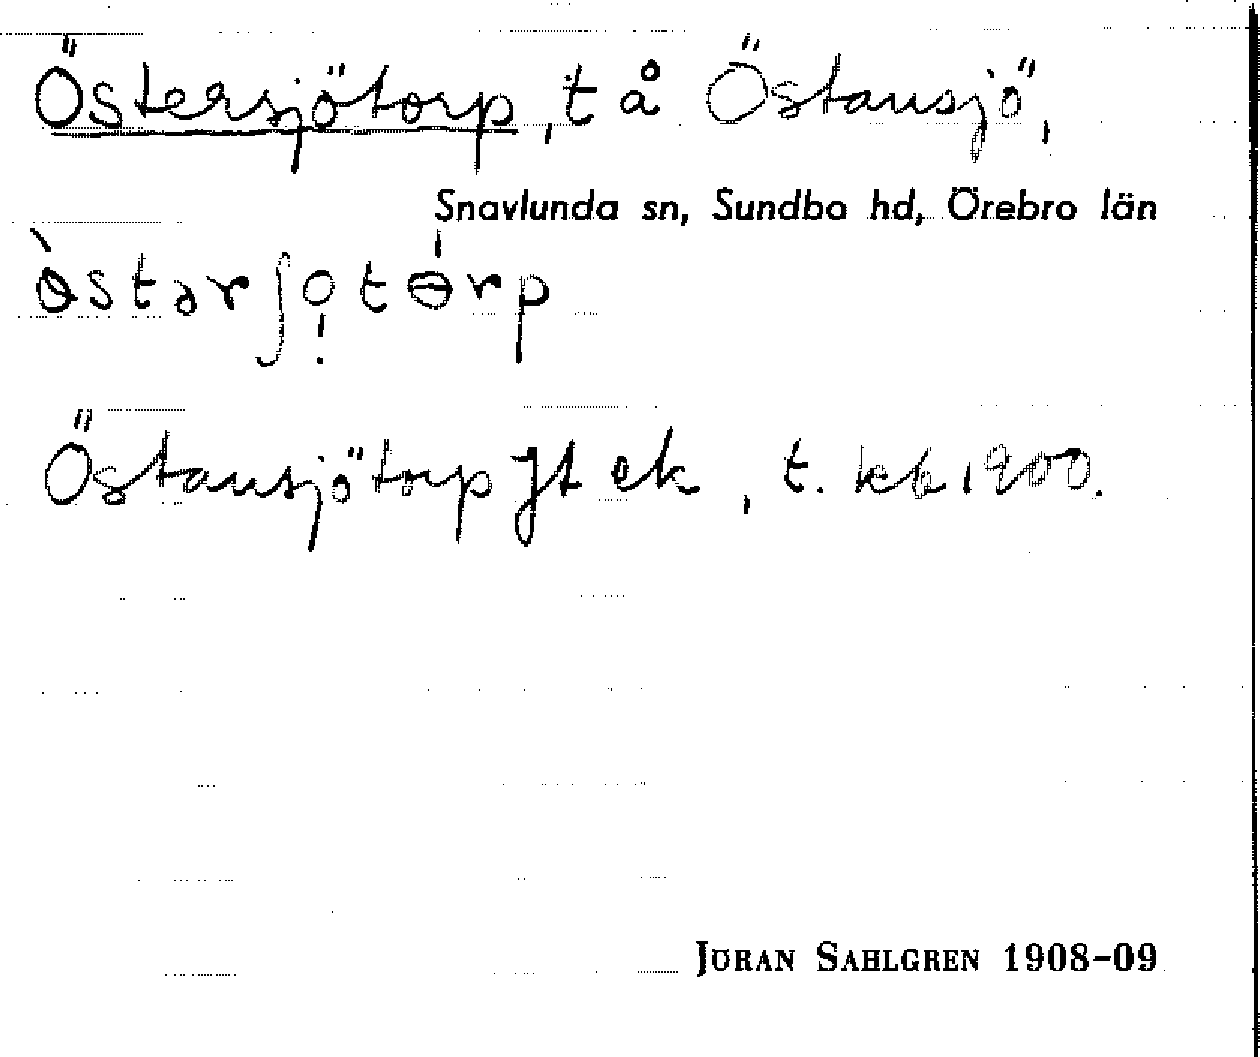 Östersjötorp, t å Östansjö,
Snavlunda sn, Sundbo hd, Örebro län
Östansjötorp Jt ek, t. kb 1900.
JÖRAN SAHLGREN 1908-09